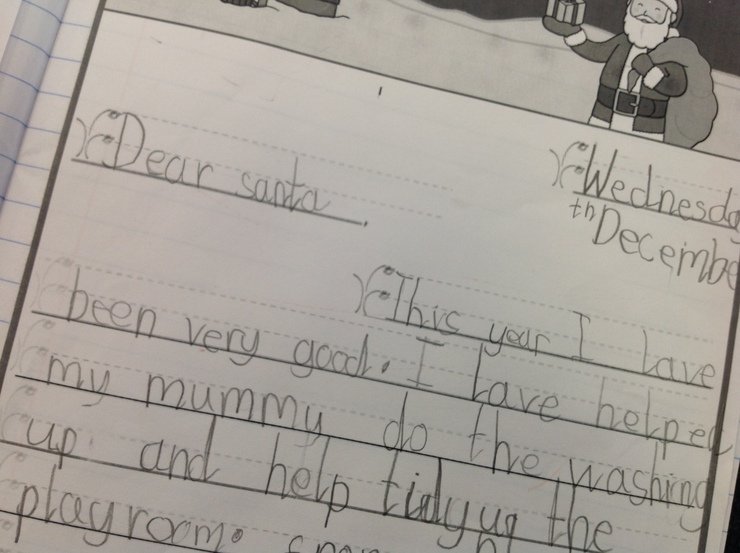 Dear santa
Wednesda
th Decembe
This year I have
been very good. I have helped
my mummy do the washing
up and help tidy up the
playroom.